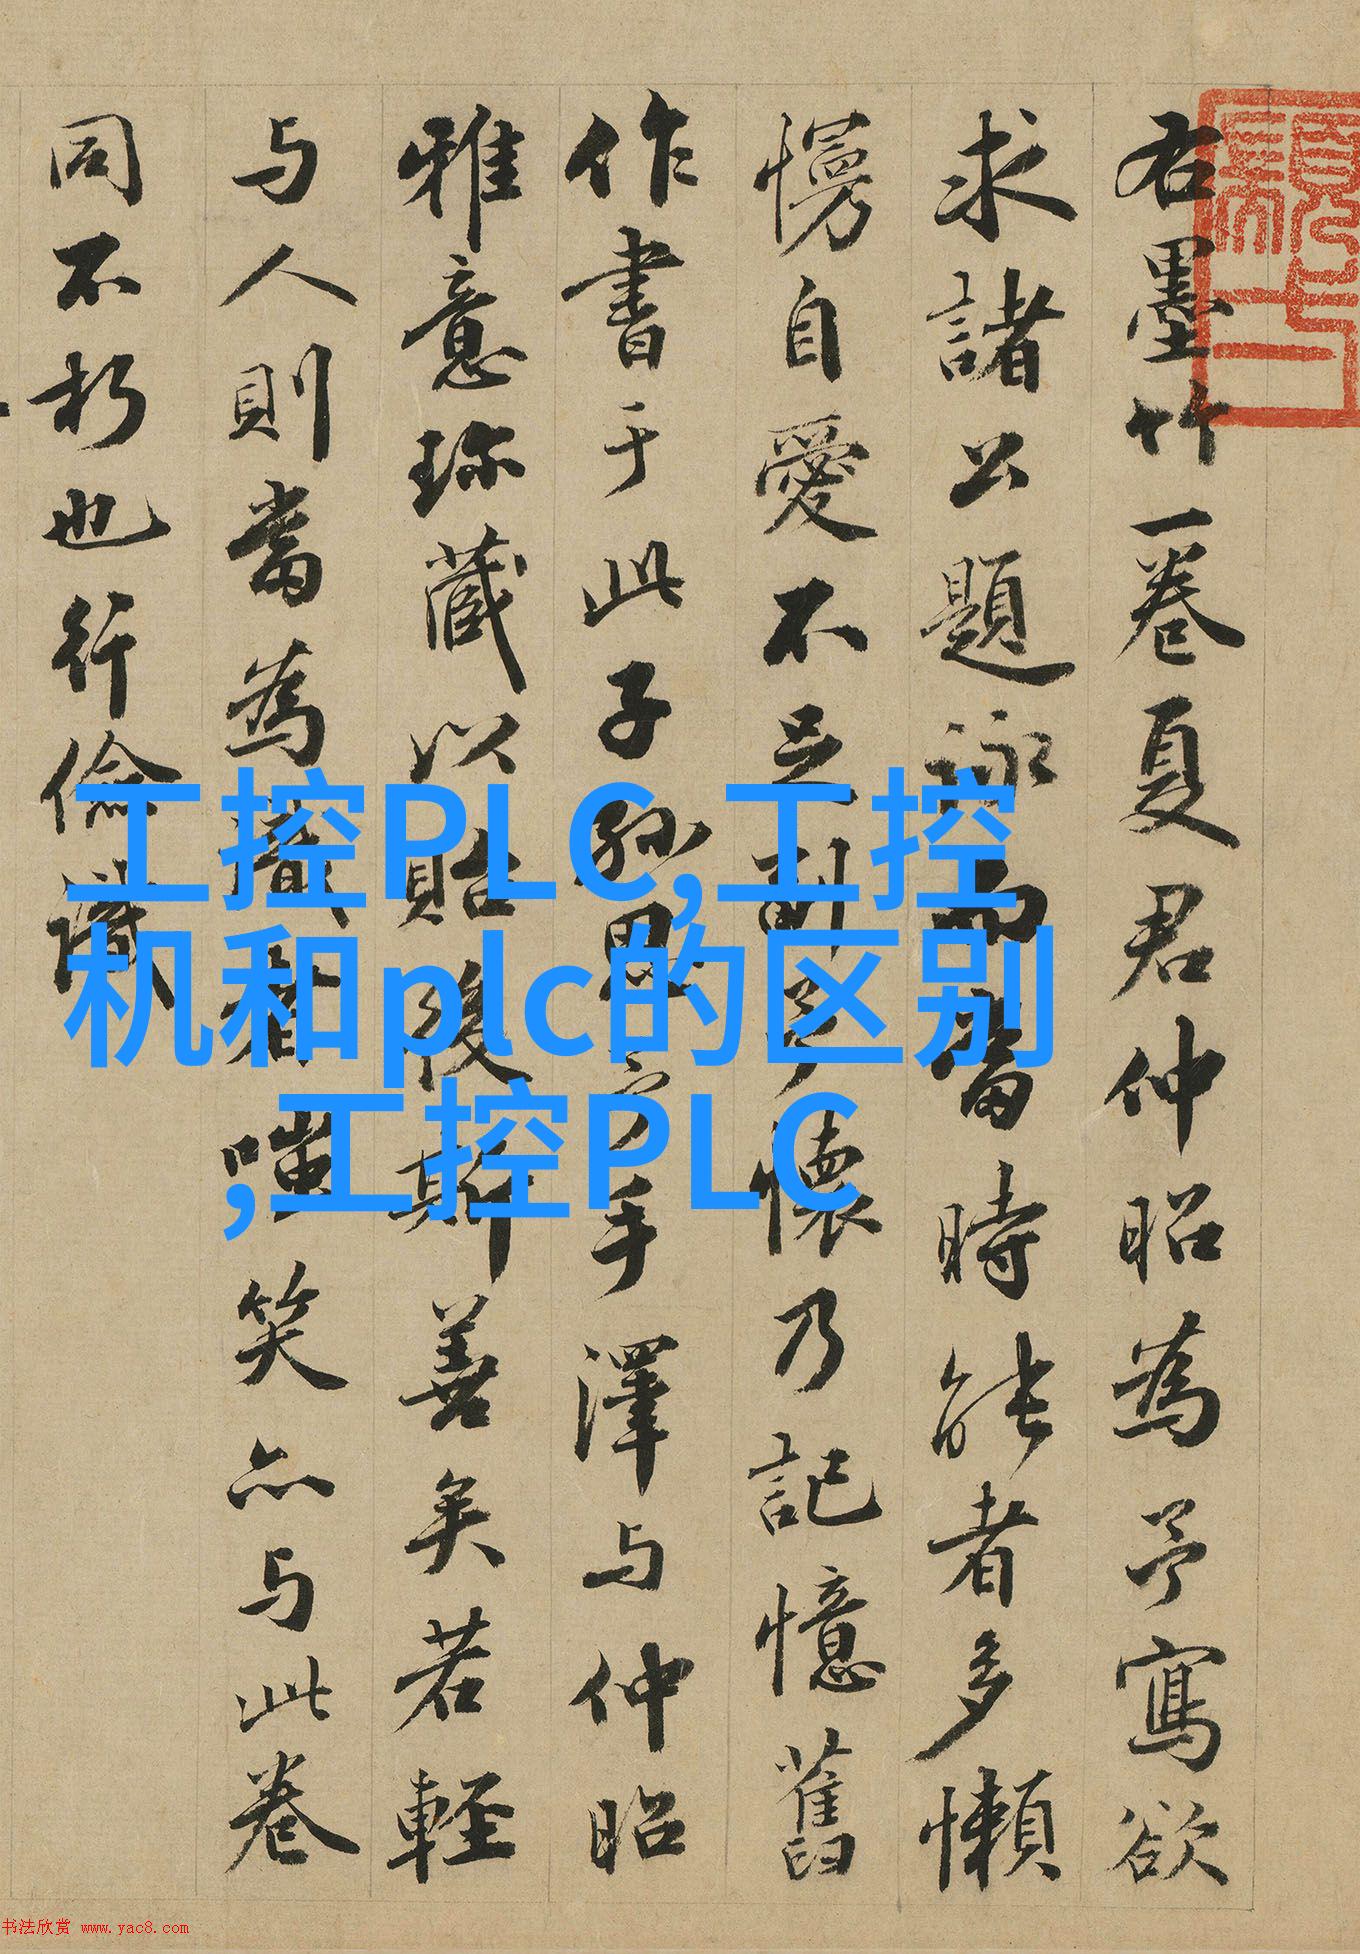 右墨竹一卷夏君仲昭為予寫欲
求諸公題詠而當時能者多懶
慢自愛不足副予懷乃記憶舊
作書于此子孫思予手澤与仲昭
雅意珎藏以貽後斯善矣若輕
与人則當為識者嗤笑亦与此卷
同不朽也行儉識
工控PLC,工控
机和plc的区别
,工控PLC
书法欣赏 www.yac8.com